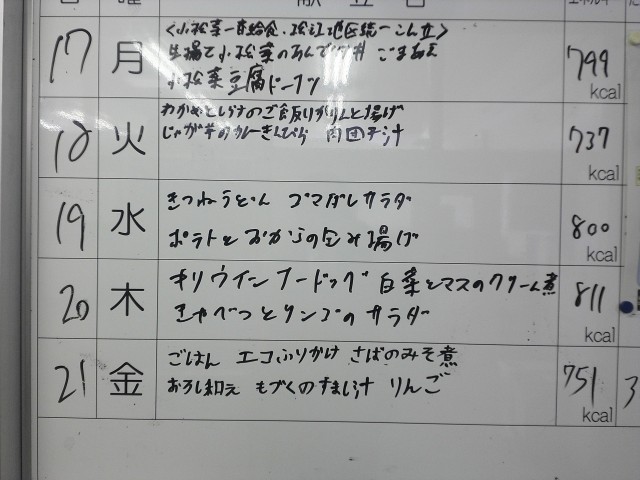 17 月 <小松菜一斉給食・松江地区統一こん立> 799 kcal
生揚と小松菜のあんかけ丼 ごまあえ
小松菜豆腐ドーナツ
18 火 わかめとしらすのご飯 ししゃものかりんと揚げ 737 kcal
じゃが芋のカレーきんぴら 肉団子汁
19 水 きつねうどん ゴマダレサラダ 800 kcal
ポテトとおからの包み揚げ
20 木 オリ ウインナードッグ 白菜とマスのクリーム煮 811 kcal
きゃべつとリンゴのサラダ
21 金 ごはん エコふりかけ さばのみそ煮 751 kcal
おろし和え もづくのすまし汁 りんご